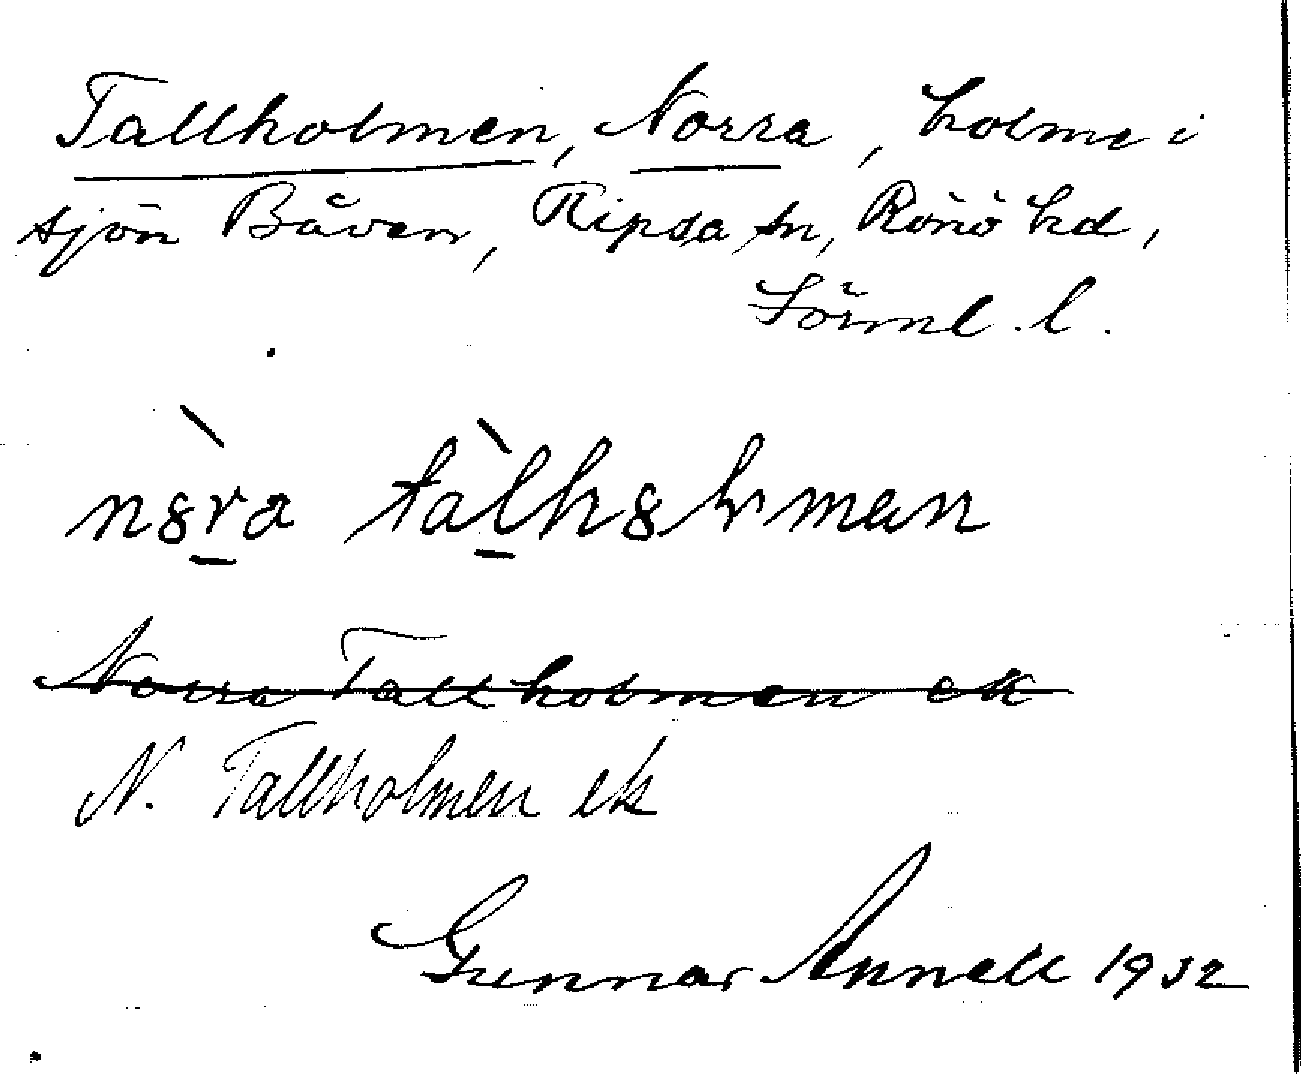 Tallholmen, Norra, holme i
sjön Båven, Ripsa sn, Rönö hd,
Sörml. l.
Norra Tallholmen ek
N. Tallholmen ek
Gunnar Annell 1932